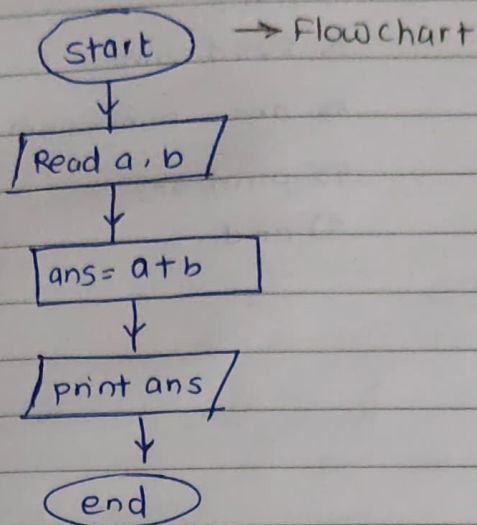 start → Flowchart
Read a, b
ans= a+b
print ans
end